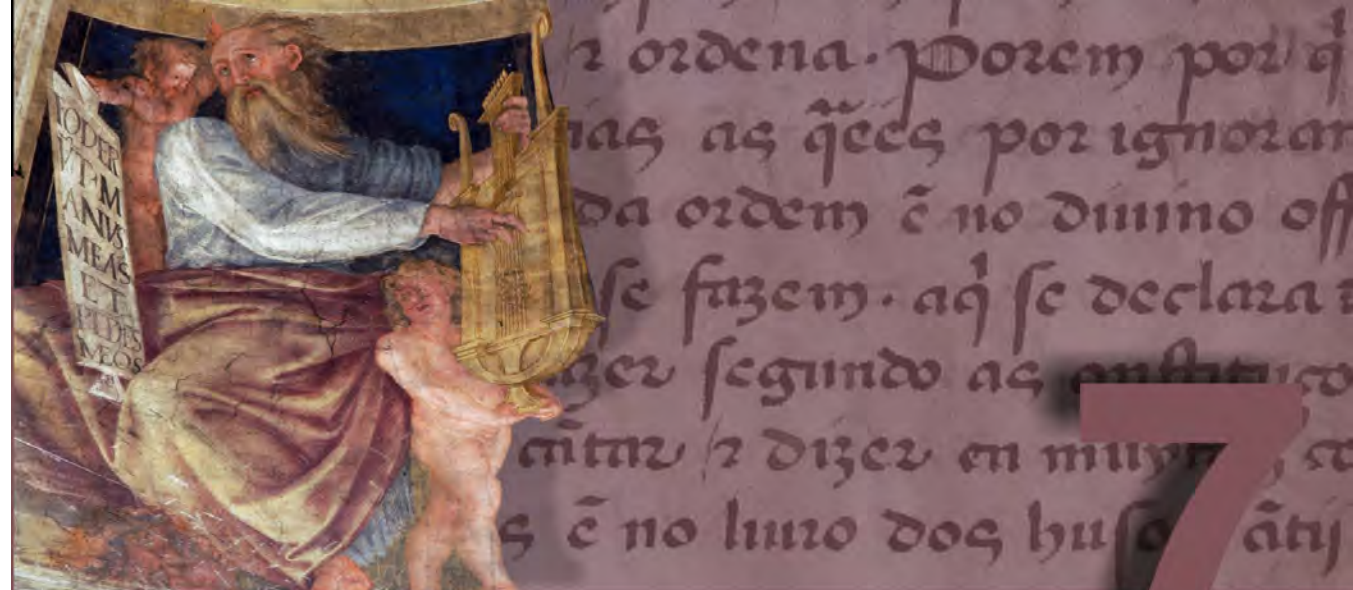 FODER
V̄T·M
ANVS
MEAS
ET
PEDES
MEOS
⁊ ordena. Porem por q̇
as q̃ees por ignoran
da ordem ẽ no diuino off
se fazem. aq̇ se declara
segundo as
cãtar ⁊ dizer en
ẽ no liuro dos ãtij
7